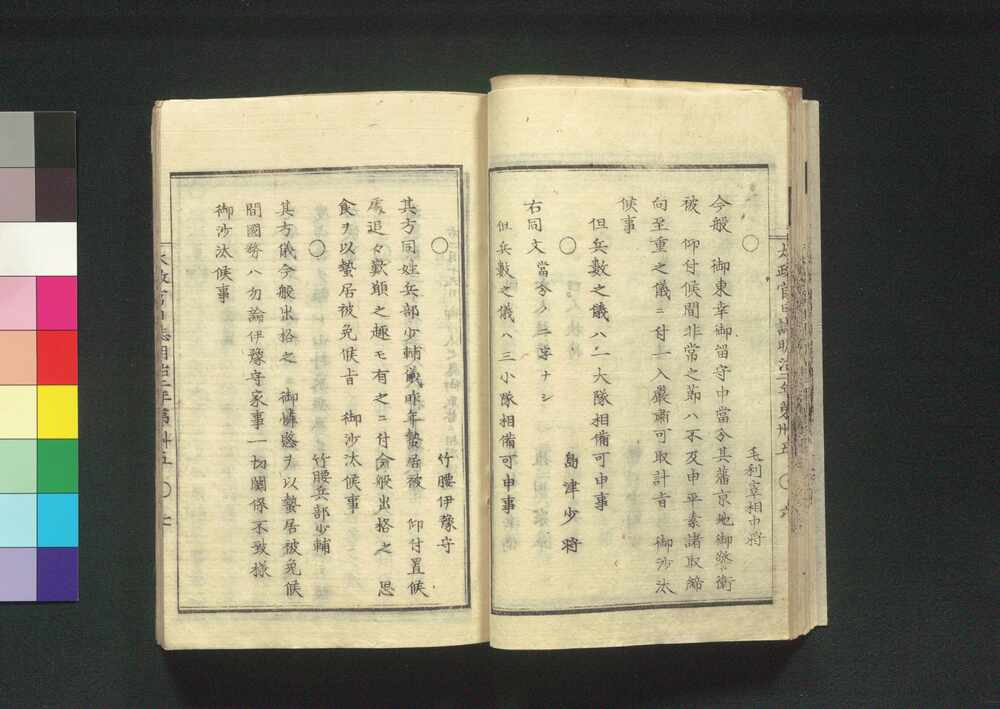 ○
毛利宰相中将
今般 御東幸御留守中當分其藩京地御警衛
被 仰付候間非常之節ハ不及申平素諸取締
向至重之儀ニ付一入嚴肅可取計旨 御沙汰
候事
但兵數之儀ハ一大隊相備可申事
○ 島津少将
右同文 當分ノ二字ナシ
但兵數之儀ハ三小隊相備可申事
太政官日誌明治二年第卅五 ○ 六
○ 竹腰伊豫守
其方同姓兵部少輔儀昨年蟄居被 仰付置候
處追々歎願之趣モ有之ニ付今般出格之 思
食ヲ以蟄居被免候旨 御沙汰候事
○ 竹腰兵部少輔
其方儀今般出格之 御憐愍ヲ以蟄居被免候
間國務ハ勿論伊豫守家事一切關係不致様
御沙汰候事
太政官日誌明治二年第卅五 ○ 七